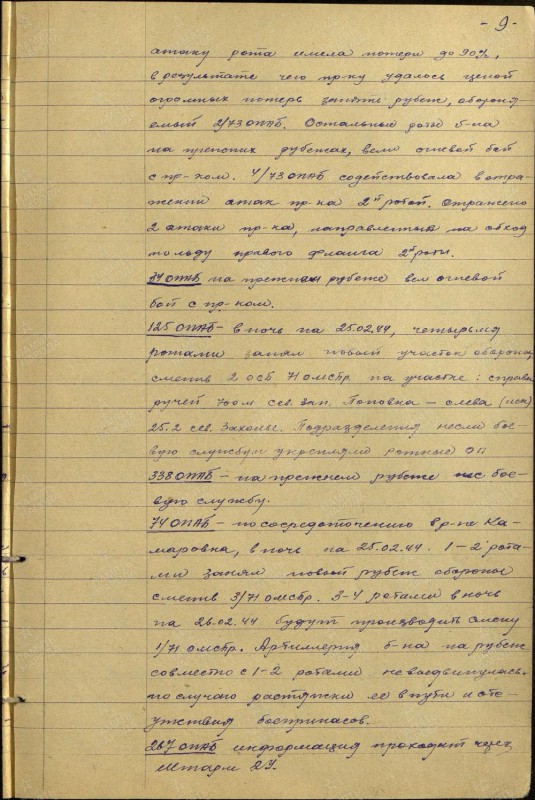 - 9 -
атаку рота имела потери до 90%,
в результате чего пр-ку удалось ценой
огромных потерь занять рубеж, обороня-
емый 2/73 ОПАБ. Остальные роты б-на
на прежних рубежах, вели огневой бой
с пр-ком. 4/73 ОПАБ содействовала в отра-
жении атак пр-ка 2й ротой. Отражено
2 атаки пр-ка, направленных на обход
по льду правого фланга 2й роты.
ОПАБ на прежнем рубеже вел огневой
бой с пр-ком.
125 ОПАБ - в ночь на 25.02.44, четырьмя
ротами занял новый участок обороны,
сменив 2 осб 71 омстр на участке: справа
ручей 700 м сев. зап. Поповка - слева (иск)
25.2 сев. Заколье. Подразделения несли бое-
вую службу и укрепляли ротные ОП
338 ОПАБ - на прежнем рубеже нес бое-
вую службу.
74 ОПАБ - по сосредоточению в р-не Ка-
маровка, в ночь на 25.02.44. 1-2 рота-
ми занял новый рубеж обороны
сменив 3/71 омстр. 3-4 ротами в ночь
на 26.02.44 будут производить смену
1/71 омстр. Артиллерия б-на на рубеж
совместно с 1-2 ротами не выдвинулась
по случаю растяжки ее в пути и отс-
утствия боеприпасов.
267 ОПАБ информация проходит через
Штарм 2У.